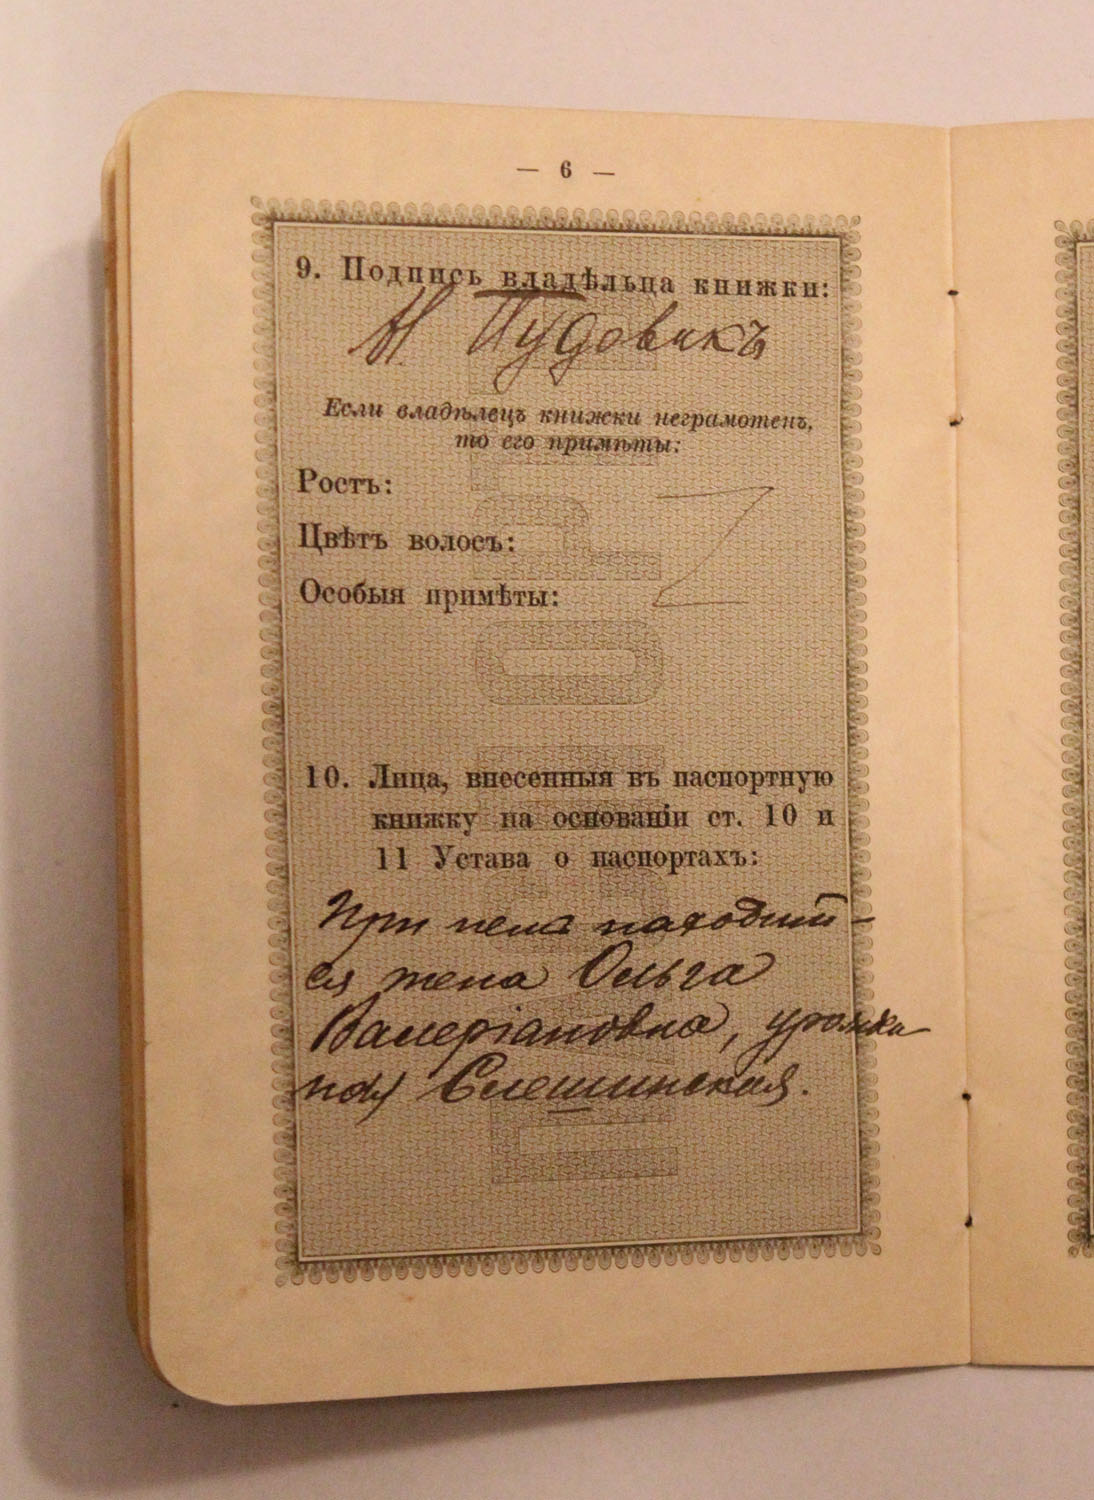 — 6 —
9. Подпись владѣльца книжки:
Н Пудовикъ
Если владѣлецъ книжки неграмотенъ,
то его примѣты:
Ростъ:
Цвѣтъ волосъ:
Особыя примѣты:
10. Лица, внесенныя въ паспортную
книжку на основаніи ст. 10 и
11 Устава о паспортахъ:
При немъ находит-
ся жена Ольга
Валеріановна, урожден
ная Слешинская.